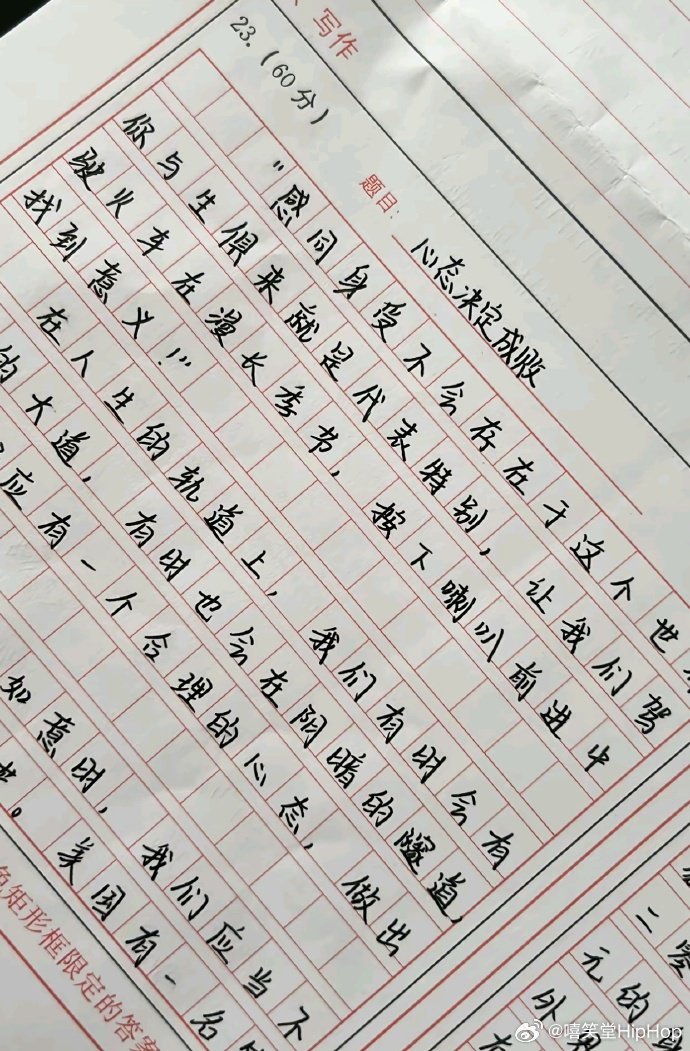 写作
23.（60分）
题目：心态决定成败
“感同身受不会存在于这个世
你与生俱来就是代表特别，让我们驾
驶火车在漫长季节，按下喇叭前进中
找到意义！”
在人生的轨道上，我们有时会有
的大道，有时也会在阴暗的隧道，
应有一个合理的心态，做出
如意时，我们应当不
。美国有一名
色矩形框限定的答案
二零
元的
外
@嘻笑堂HipHop